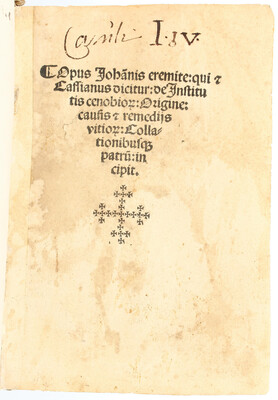 I. g v.
¶Opus Johānis eremite: qui ⁊
Cassianus dicitur: de Institu
tis cenobioꝝ: Origine:
causis ⁊ remedijs
vitioꝝ: Colla-
tionibusqꝫ
patrū: in
cipit.